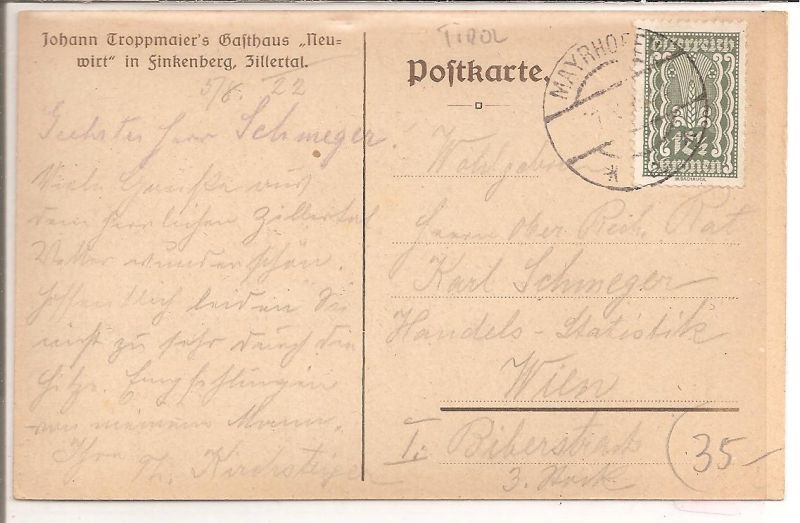 Johann Troppmaier's Gasthaus „Neu-
wirt" in Finkenberg, Zillertal.
5/8. 22
Geehrter Herr Schmeger.
Viele Gruesse aus
dem herrlichen Zillertal
Wetter wunderschön.
Hoffentlich leiden Sie
nicht zu sehr durch die
Hitze. Empfehlungen
von meinem Mann.
Ihre Th. Kirchsteiger
TIROL
Postkarte.
MAYRHOF
Österreich
12½
Kronen
Wohlgeboren
Herrn Ober Rech. Rat
Karl Schmeger
Handels-Statistik
Wien
I. Biberstrasse
3. Stock
35-